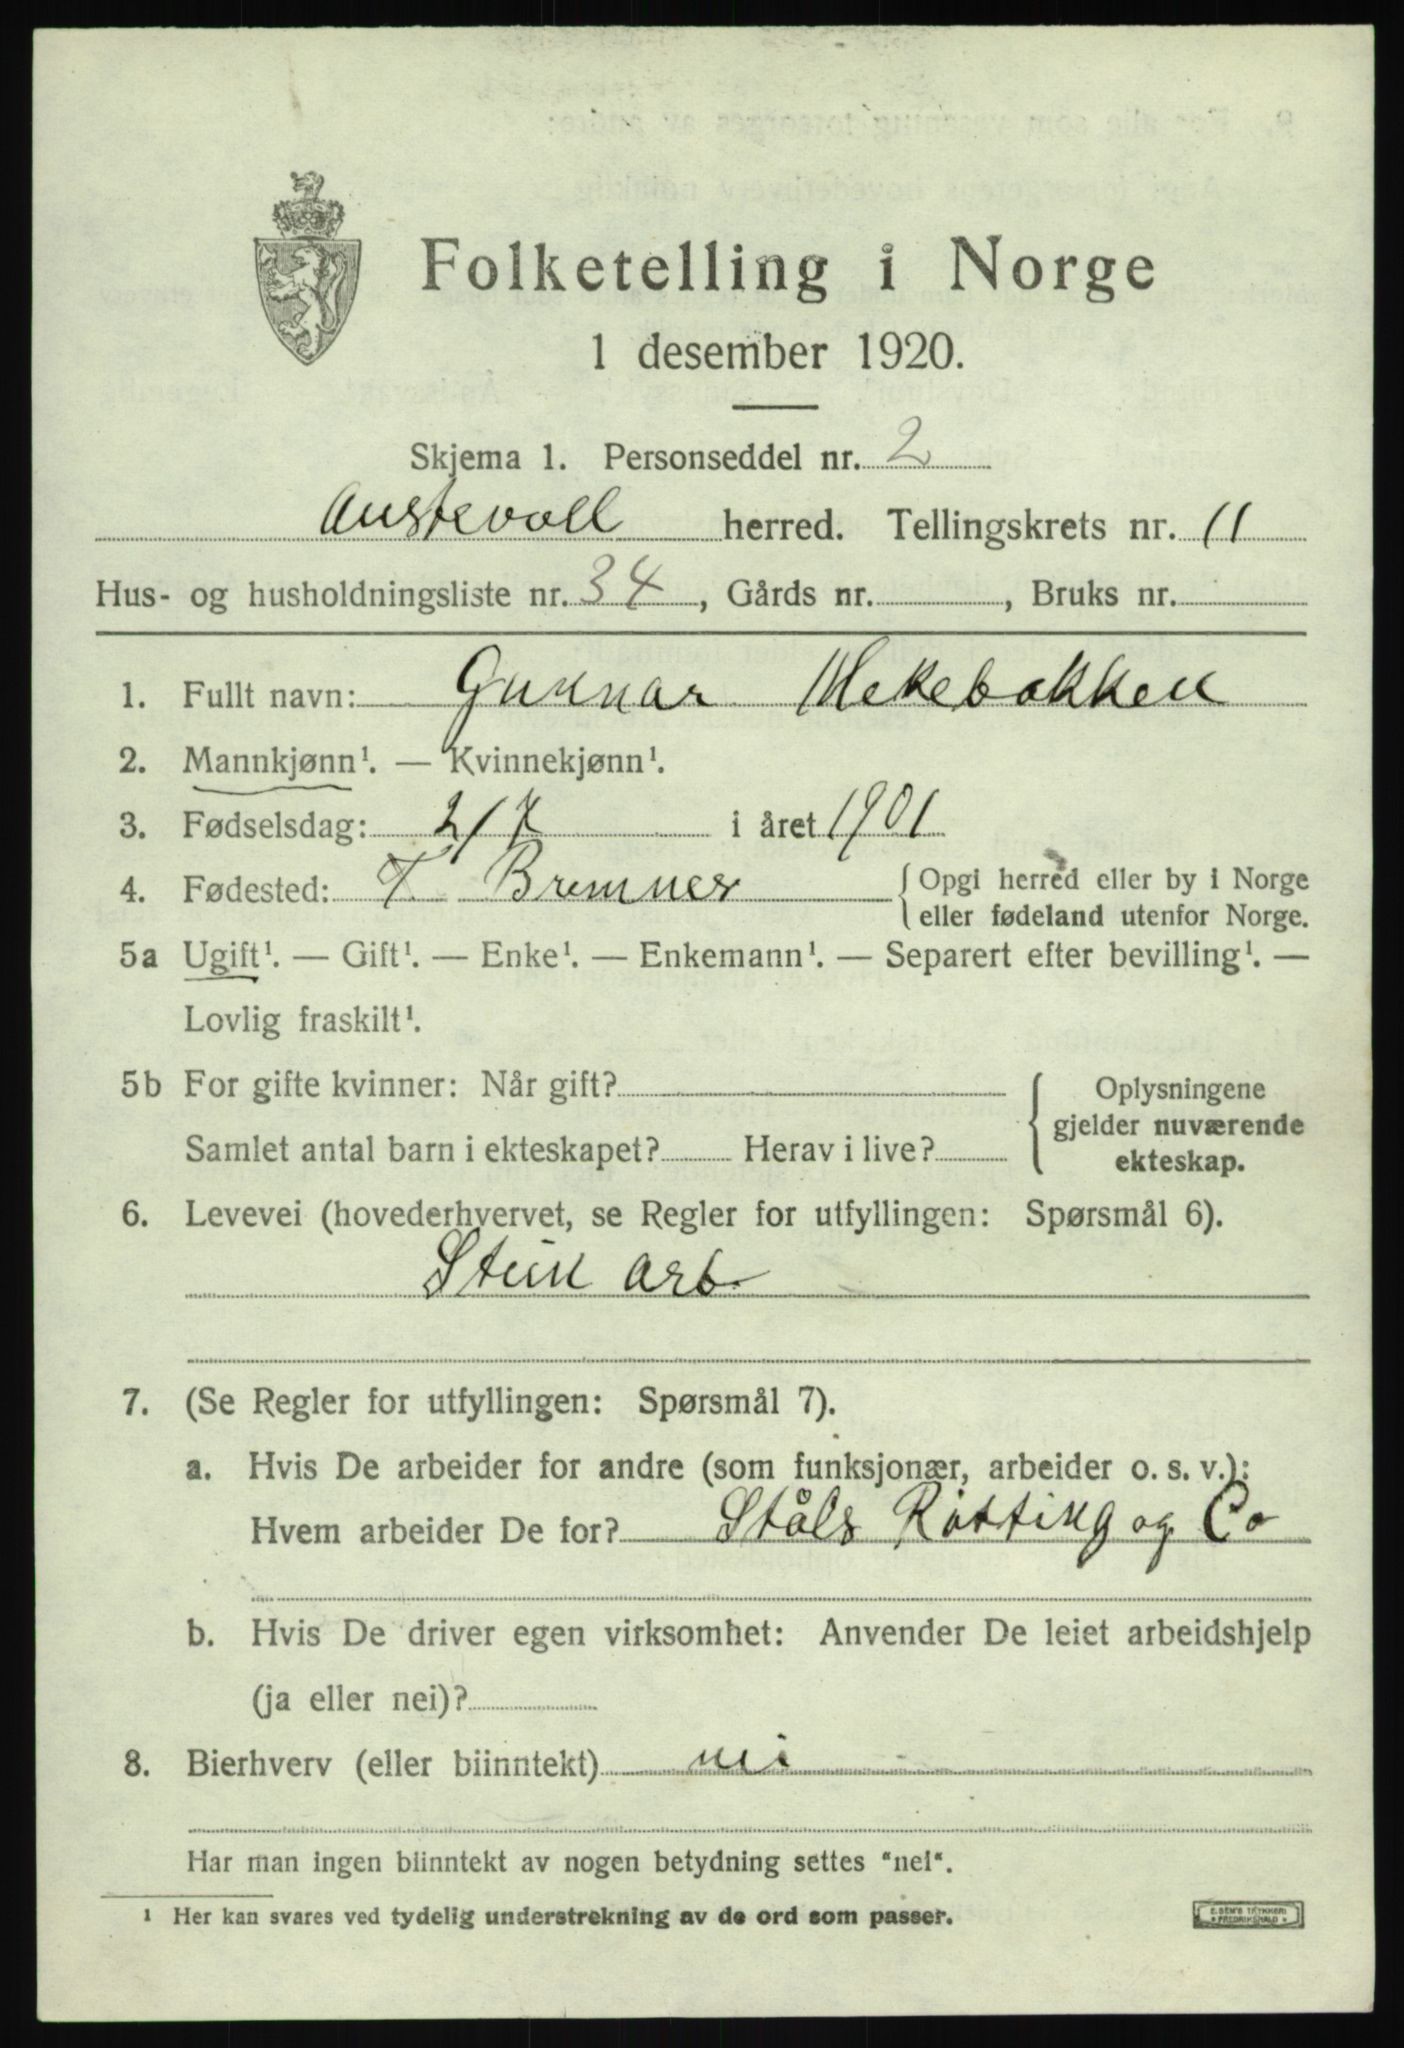 Folketelling i Norge
1 desember 1920.
Skjema 1. Personseddel nr. 2
Austevoll herred. Tellingskrets nr. 11
Hus- og husholdningsliste nr. 34, Gårds nr. , Bruks nr.
1. Fullt navn: Gunnar Mekebakken
2. Mannkjønn¹. — Kvinnekjønn¹.
3. Fødselsdag: 2/7 i året 1901
4. Fødested: T Bremnes {Opgi herred eller by i Norge
eller fødeland utenfor Norge.
5a Ugift¹. — Gift¹. — Enke¹. — Enkemann¹. — Separert efter bevilling¹. —
Lovlig fraskilt¹.
5b For gifte kvinner: Når gift?
Samlet antal barn i ekteskapet? Herav i live?
{ Oplysningene
gjelder nuværende
ekteskap.
6. Levevei (hovederhvervet, se Regler for utfyllingen: Spørsmål 6).
Stein arb.
7. (Se Regler for utfyllingen: Spørsmål 7).
a. Hvis De arbeider for andre (som funksjonær, arbeider o. s. v.):
Hvem arbeider De for? Ståls Rötting og Co
b. Hvis De driver egen virksomhet: Anvender De leiet arbeidshjelp
(ja eller nei)?
8. Bierhverv (eller biinntekt) nei
Har man ingen biinntekt av nogen betydning settes "nei".
¹ Her kan svares ved tydelig understrekning av de ord som passer.
E. SEM'S TRYKKERI
FREDRIKSHALD